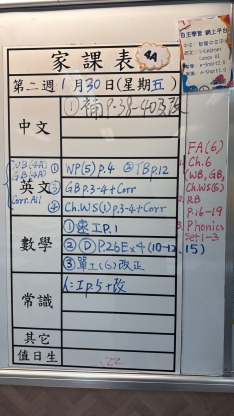 家課表
自主學習 網上平台
第二週 1月30日(星期五)
中文
① 補 P.38-40及改
英文
WB(4A)
GB(4A)
Corr. All
① NP(5) p.4 ② TB p.12
③ GB p.3-4+Corr
④ Ch.WS① p.3-4+Corr
數學
① 速I P.1
② Ⓓ P.26 Ex4 (10-12, 15)
③ 單工(6) 改正
常識
I p.5+改
其它
值日生
22
FA(6)
1. Ch.6
(WB, GB,
Ch.WS⑥)
2. RB
P.16-19
3. Phonics
Set 1-3